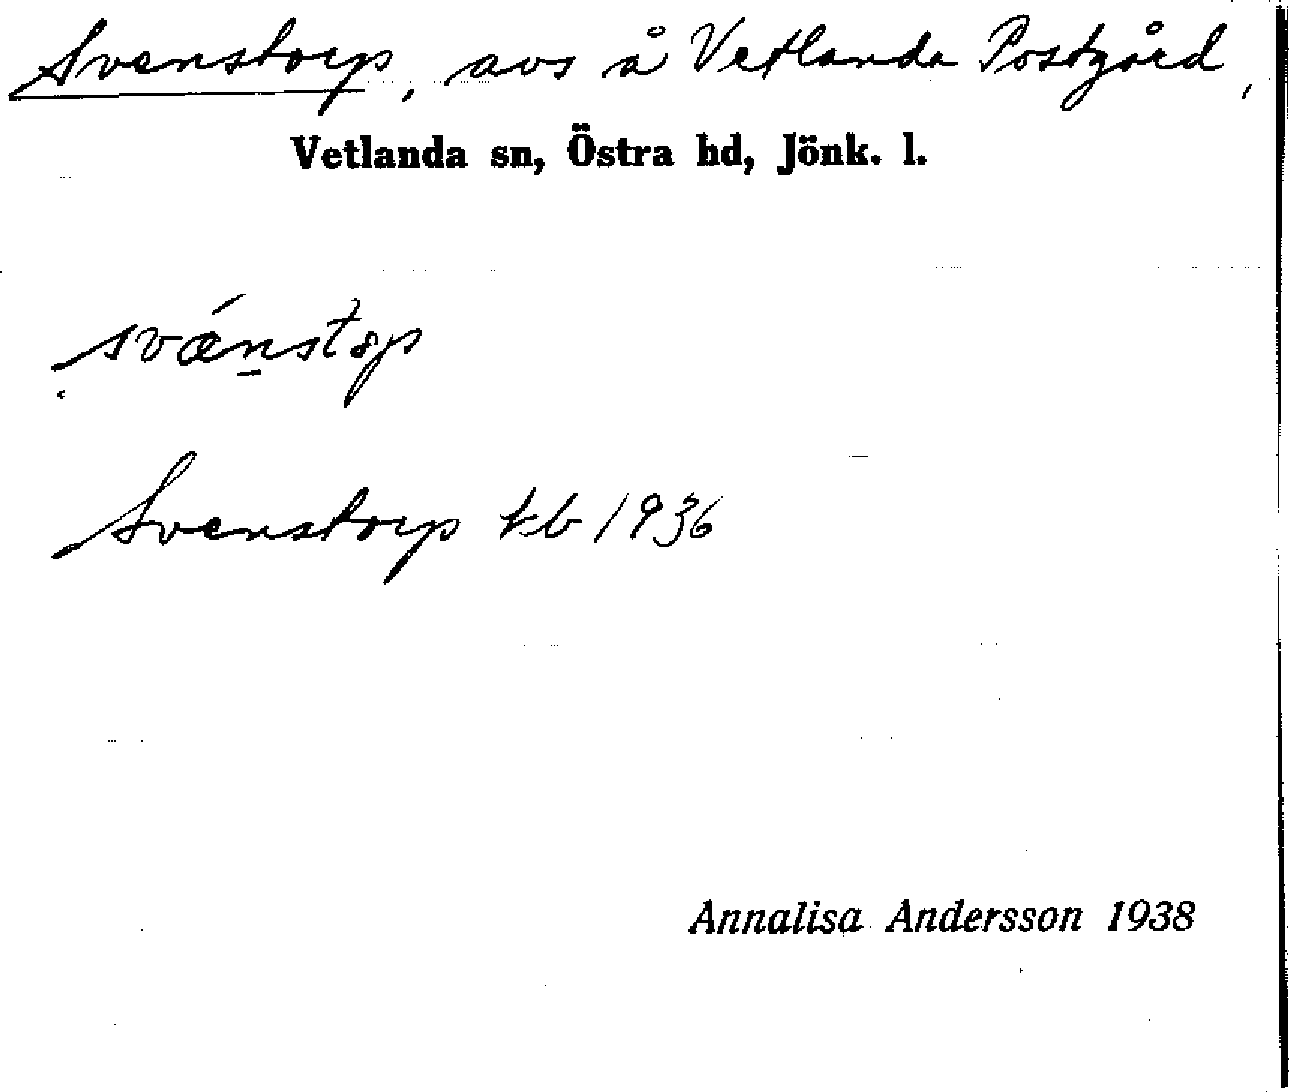 Svenstorp, avs å Vetlanda Postgård,
Vetlanda sn, Östra hd, Jönk. l.
svǽn̲stȣp
Svenstorp kb 1936
Annalisa Andersson 1938